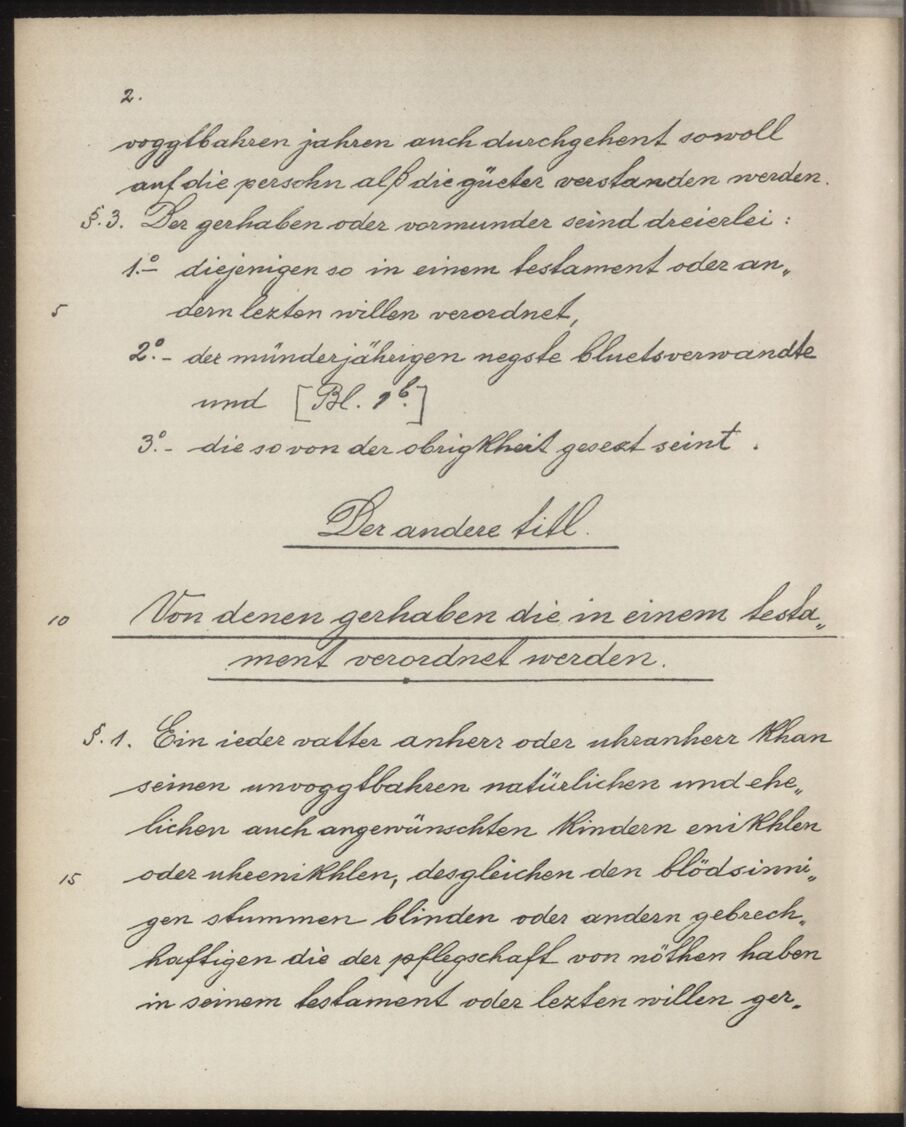 2.
voggtbahren jahren auch durchgehent sowoll
auf die persohn alß die güeter verstanden werden.
§. 3. Der gerhaben oder vormunder seind dreierlei :
1.º- diejenigen so in einem testament oder an„
5 dern lezten willen verordnet,
2º.- der münderjährigen negste bluetsverwandte
und [Bl. 1b.]
3.º- die so von der obrigkheit gesezt seint.
Der andere titl.
10 Von denen gerhaben die in einem testa„
ment verordnet werden.
§. 1. Ein ieder vatter anherr oder uhranherr khan
seinen unvoggtbahren natürlichen und ehe„
lichen auch angewünschten kindern enikhlen
15 oder uhrenikhlen, desgleichen den blödsinni„
gen stummen blinden oder andern gebrech„
hafftigen die der pflegschaft von nöthen haben
in seinem testament oder lezten willen ger„